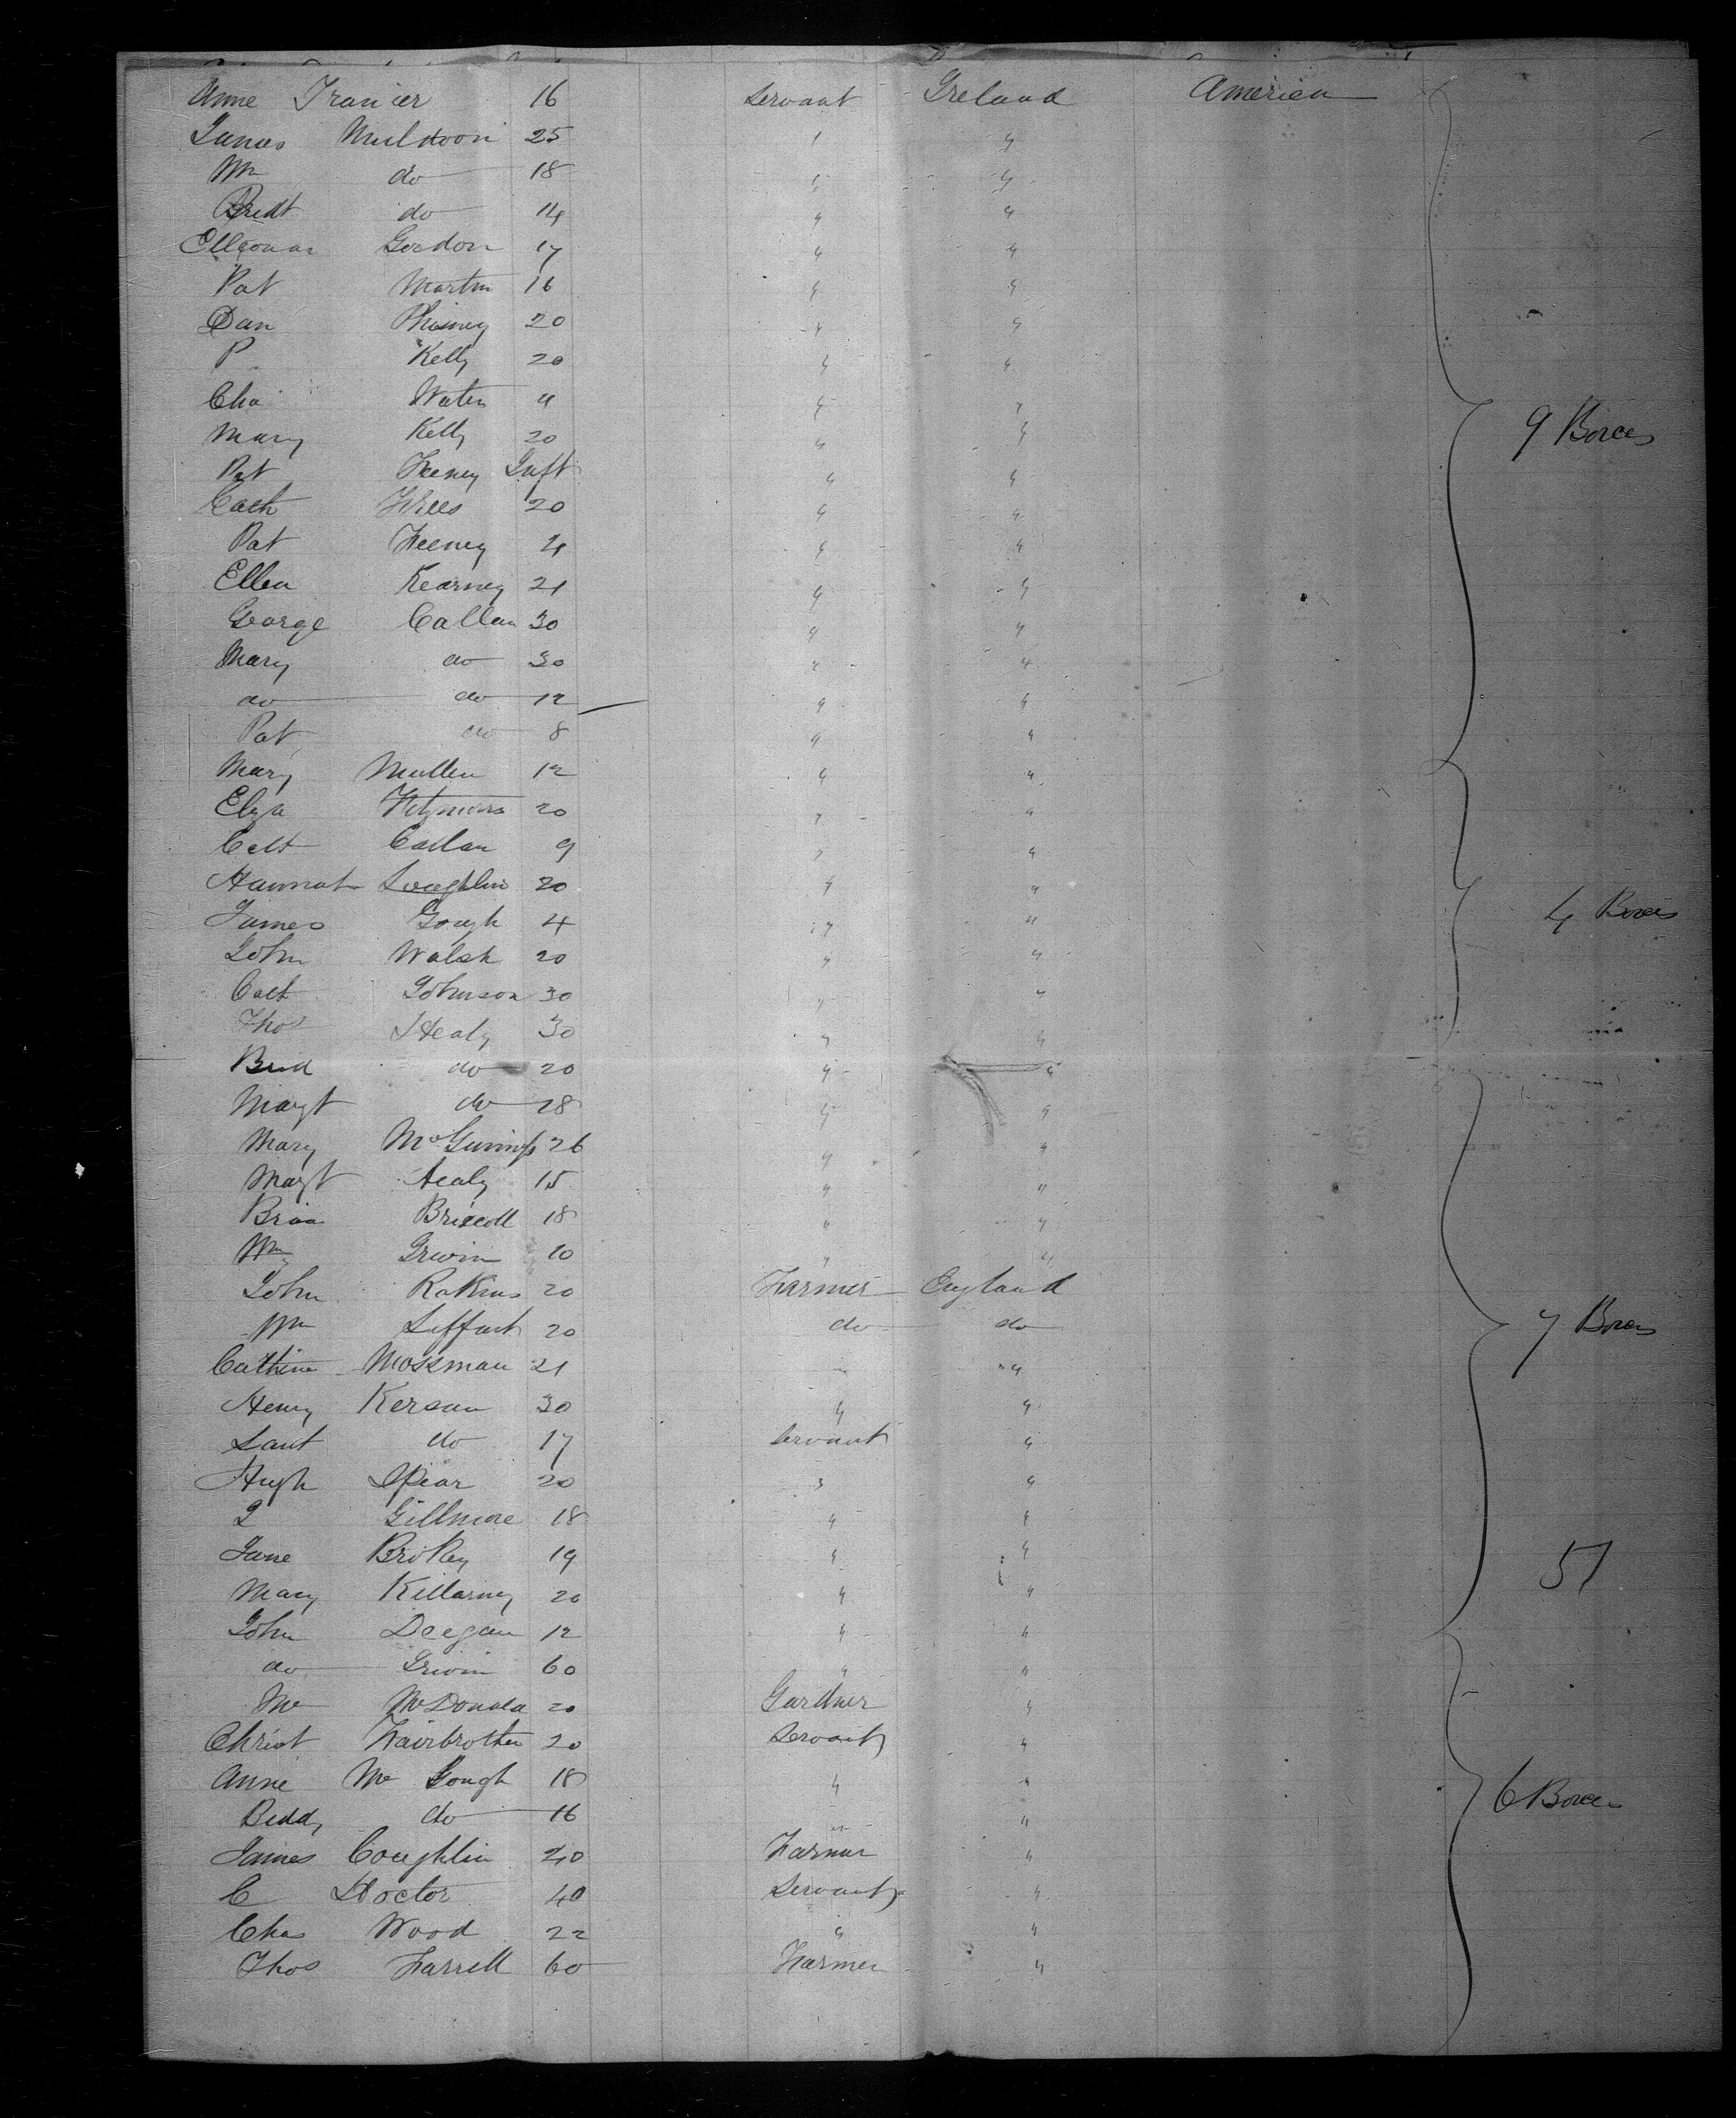 Anne 16 Servant Ireland America
James Muldoon 25 " "
Wm do 18 " "
Bridt do 14 " "
Gordon 17 " "
Pat Martin 16 " "
Dan 20 " "
P Kelly 20 " "
Cha Waters " "
Mary Kelly 20 " "
9 Boxes
Pat Feeney Inft " "
Cath 20 " "
Pat Feeney " "
Ellen Kearney 21 " "
George Callan 30 " "
Mary do 30 " "
do do 12 " "
Pat do 8 " "
Mary Mullen 12 " "
Eliza 20 " "
Cath Callan 9 " "
Hannah Loughlin 20 " "
James Gough 4 " "
4 Boxes
John Walsh 20 " "
Cath Johnson 30 " "
Thos Healy 30 " "
Brid do 20 " "
Margt do 28 " "
Mary 26 " "
Margt Healy 15 " "
18 " "
Wm Irwin 10 " "
John 20 Farmer England
Wm 20 do do
7 Boxes
Cathine Mossman 21 " "
Henry Kersan 30 " "
do 17 Servant "
Hugh Spear 20 " "
J Gillmore 18 " "
Jane 19 " "
57
Mary Killarney 20 " "
John Deegan 12 " "
do Irwin 60 " "
McDonald 20 Gardner "
Christ Fairbrother 20 Servant "
Anne Mc Gough 18 " "
6 Boxes
Biddy do 16 " "
James Coughlin 40 Farmer "
C Doctor 40 Servant "
Chas Wood 22 " "
Thos Farrell 60 Farmer "